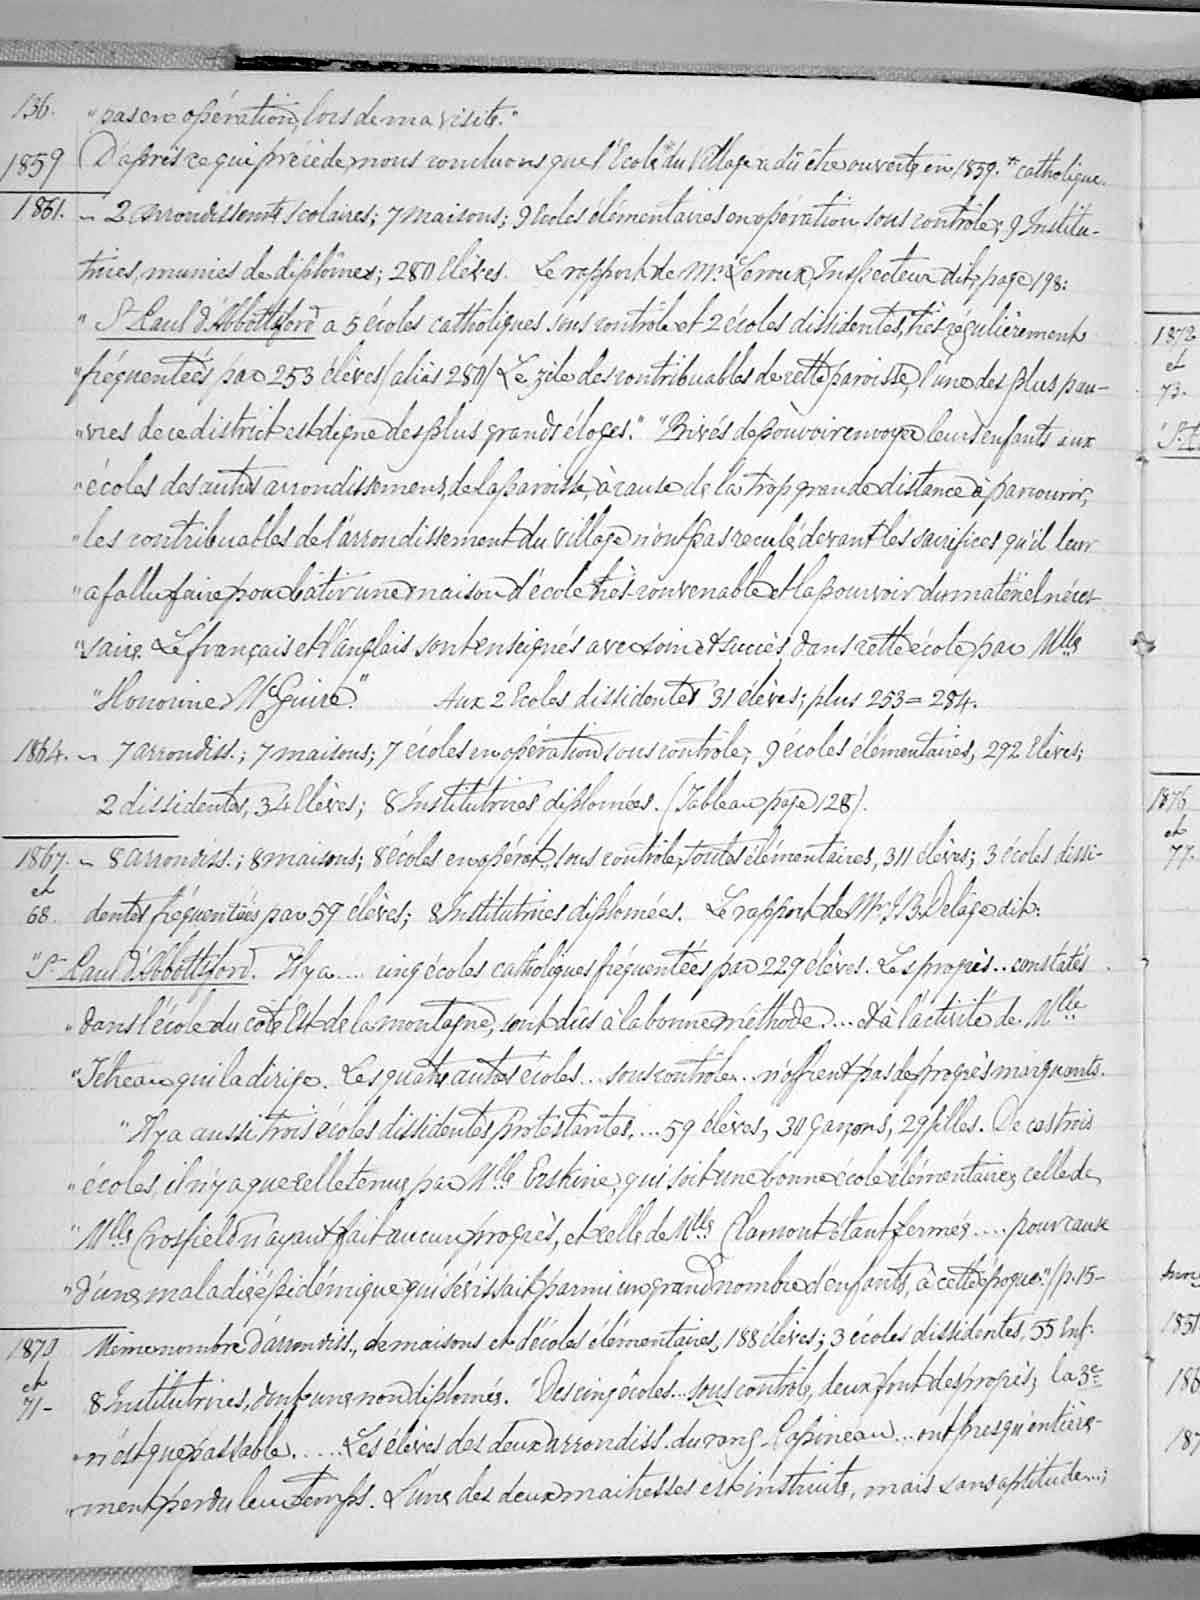 136. "pas en opération, lors de ma visite."
1859 D'après ce qui précède, nous concluons que l'École du Village a dû être ouverte en 1859. catholique.
1861. ~ 2 arrondissements scolaires; 7 maisons; 9 écoles élémentaires en opération sous contrôle; 9 Institu-
trices, munies de diplômes; 280 Elèves. Le rapport de Mr. Leroux, Inspecteur dit, page 198:
"St Paul d'Abbottsford a 5 écoles catholiques sous contrôle et 2 écoles dissidentes, très régulièrement
"fréquentées par 253 élèves (alias 280) Le zèle des contribuables de cette paroisse, l'une des plus pau-
"vres de ce district est digne des plus grands éloges." "Privés de pouvoir envoyer leurs enfants aux
"écoles des autres arrondissemens, de la paroisse, à cause de la trop grande distance à parcourir,
"les contribuables de l'arrondissement du village n'ont pas reculé devant les sacrifices qu'il leur
"a fallu faire pour bâtir une maison d'école très-convenable et la pourvoir du matériel néces-
"saire. Le français et l'anglais sont enseignés avec soin et succès, dans cette école par Mlle
"Honorine McGuire." Aux 2 Ecoles dissidentes 31 élèves; plus 253 = 284.
1864. ~ 7 arrondiss.; 7 maisons; 7 écoles en opération sous contrôle; 9 écoles élémentaires, 292 Elèves;
2 dissidentes, 34 Elèves; 8 Institutrices diplomées. (Tableau page 128).
1867. ~ 8 arrondiss.; 8 maisons; 8 écoles en opérat., sous contrôle, toutes élémentaires, 311 élèves; 3 écoles dissi-
et
68. dentes fréquentées par 59 élèves; 8 Institutrices diplomées. Le rapport de Mr J B Delâge dit:
"St Paul d'Abbottsford. Il y a ... cinq écoles catholiques fréquentées par 229 élèves. Les progrès .. constatés
"dans l'école du côté Est de la montagne, sont dûs à la bonne méthode .... et à l'activité de Mlle
"Tétreau qui la dirige. Les quatre autres écoles ... sous contrôle ... n'offrent pas de progrès marquants.
"Il y a aussi trois écoles dissidentes, Protestantes, .... 59 élèves, 30 garçons, 29 filles. De ces trois
"écoles, il n'y a que celle tenue par Mlle Erskine, qui soit une bonne école élémentaire; celle de
"Mlle Crosfield n'ayant fait aucun progrès, et celle de Mlle Clamont étant fermée .... pour cause
"d'une maladie épidémique qui sévissait parmi un grand nombre d'enfants, à cette époque." (p. 15-
1870 Même nombre d'arrondiss., de maisons et d'écoles élémentaires, 188 élèves; 3 écoles dissidentes, 55 Enf.
et
71- 8 Institutrices, dont une non diplomée. "Des cinq écoles ... sous contrôle, deux font des progrès; la 3e
"n'est que passable. .... Les élèves des deux arrondiss. du rang Papineau ... ont presqu'entière-
"ment perdu leur temps. L'une des deux maîtresses est instruite, mais sans aptitude...;
1872
et
73.
"St
1876
et
77.
1851
186
187